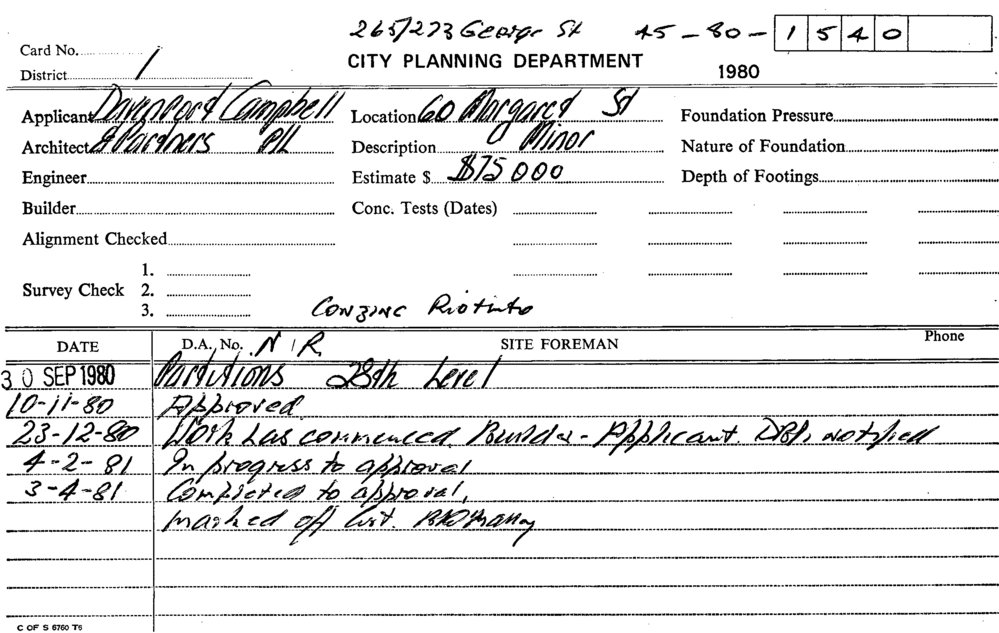 265/273 George St 45-80-1540
Card No. 
CITY PLANNING DEPARTMENT
District 1
1980
Applicant Davenport Campbell Location 60 Margaret St Foundation Pressure
Architect & Partners P/L Description Minor Nature of Foundation
Engineer Estimate $ $75000 Depth of Footings
Builder Conc. Tests (Dates)
Alignment Checked
1.
Survey Check 2.
3. Conzinc Riotinto
DATE D.A. No. N/R. SITE FOREMAN Phone
30 SEP 1980 Partitions 28th Level
10-11-80 Approved
23-12-80 Work has commenced. Builder - Applicant. notified
4-2-81 In progress to approval
3-4-81 Completed to approval,
marked off list.
C OF S 6760 T6